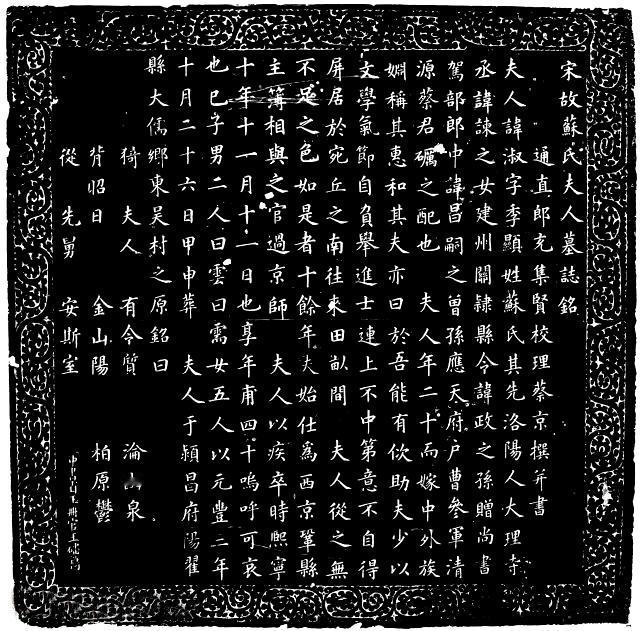 宋故蘇氏夫人墓誌銘
通直郎充集賢校理蔡京撰并書
夫人諱淑字季顯姓蘇氏其先洛陽人大理寺
丞諱諫之女建州關隷縣令諱政之孫贈尚書
駕部郎中諱昌嗣之曾孫應天府户曹參軍清
源蔡君礪之配也 夫人年二十而嫁中外族
姻稱其惠和其夫亦曰於吾能有佽助夫少以
文學氣節自負舉進士連上不中第意不自得
屏居於宛丘之南往來田畝間 夫人從之無
不足之色如是者十餘年夫始仕為西京鞏縣
主簿相與之官過京師 夫人以疾卒時熙寧
十年十一月十一日也享年甫四十嗚呼可哀
也已子男二人曰雲曰需女五人以元豐二年
十月二十六日甲申葬 夫人于潁昌府陽翟
縣大儒鄉東吳村之原銘曰
猗夫人 有令質 淪山泉
背昭日 金山陽 柏原鬱
從先舅 安斯室
中書省玉冊官王